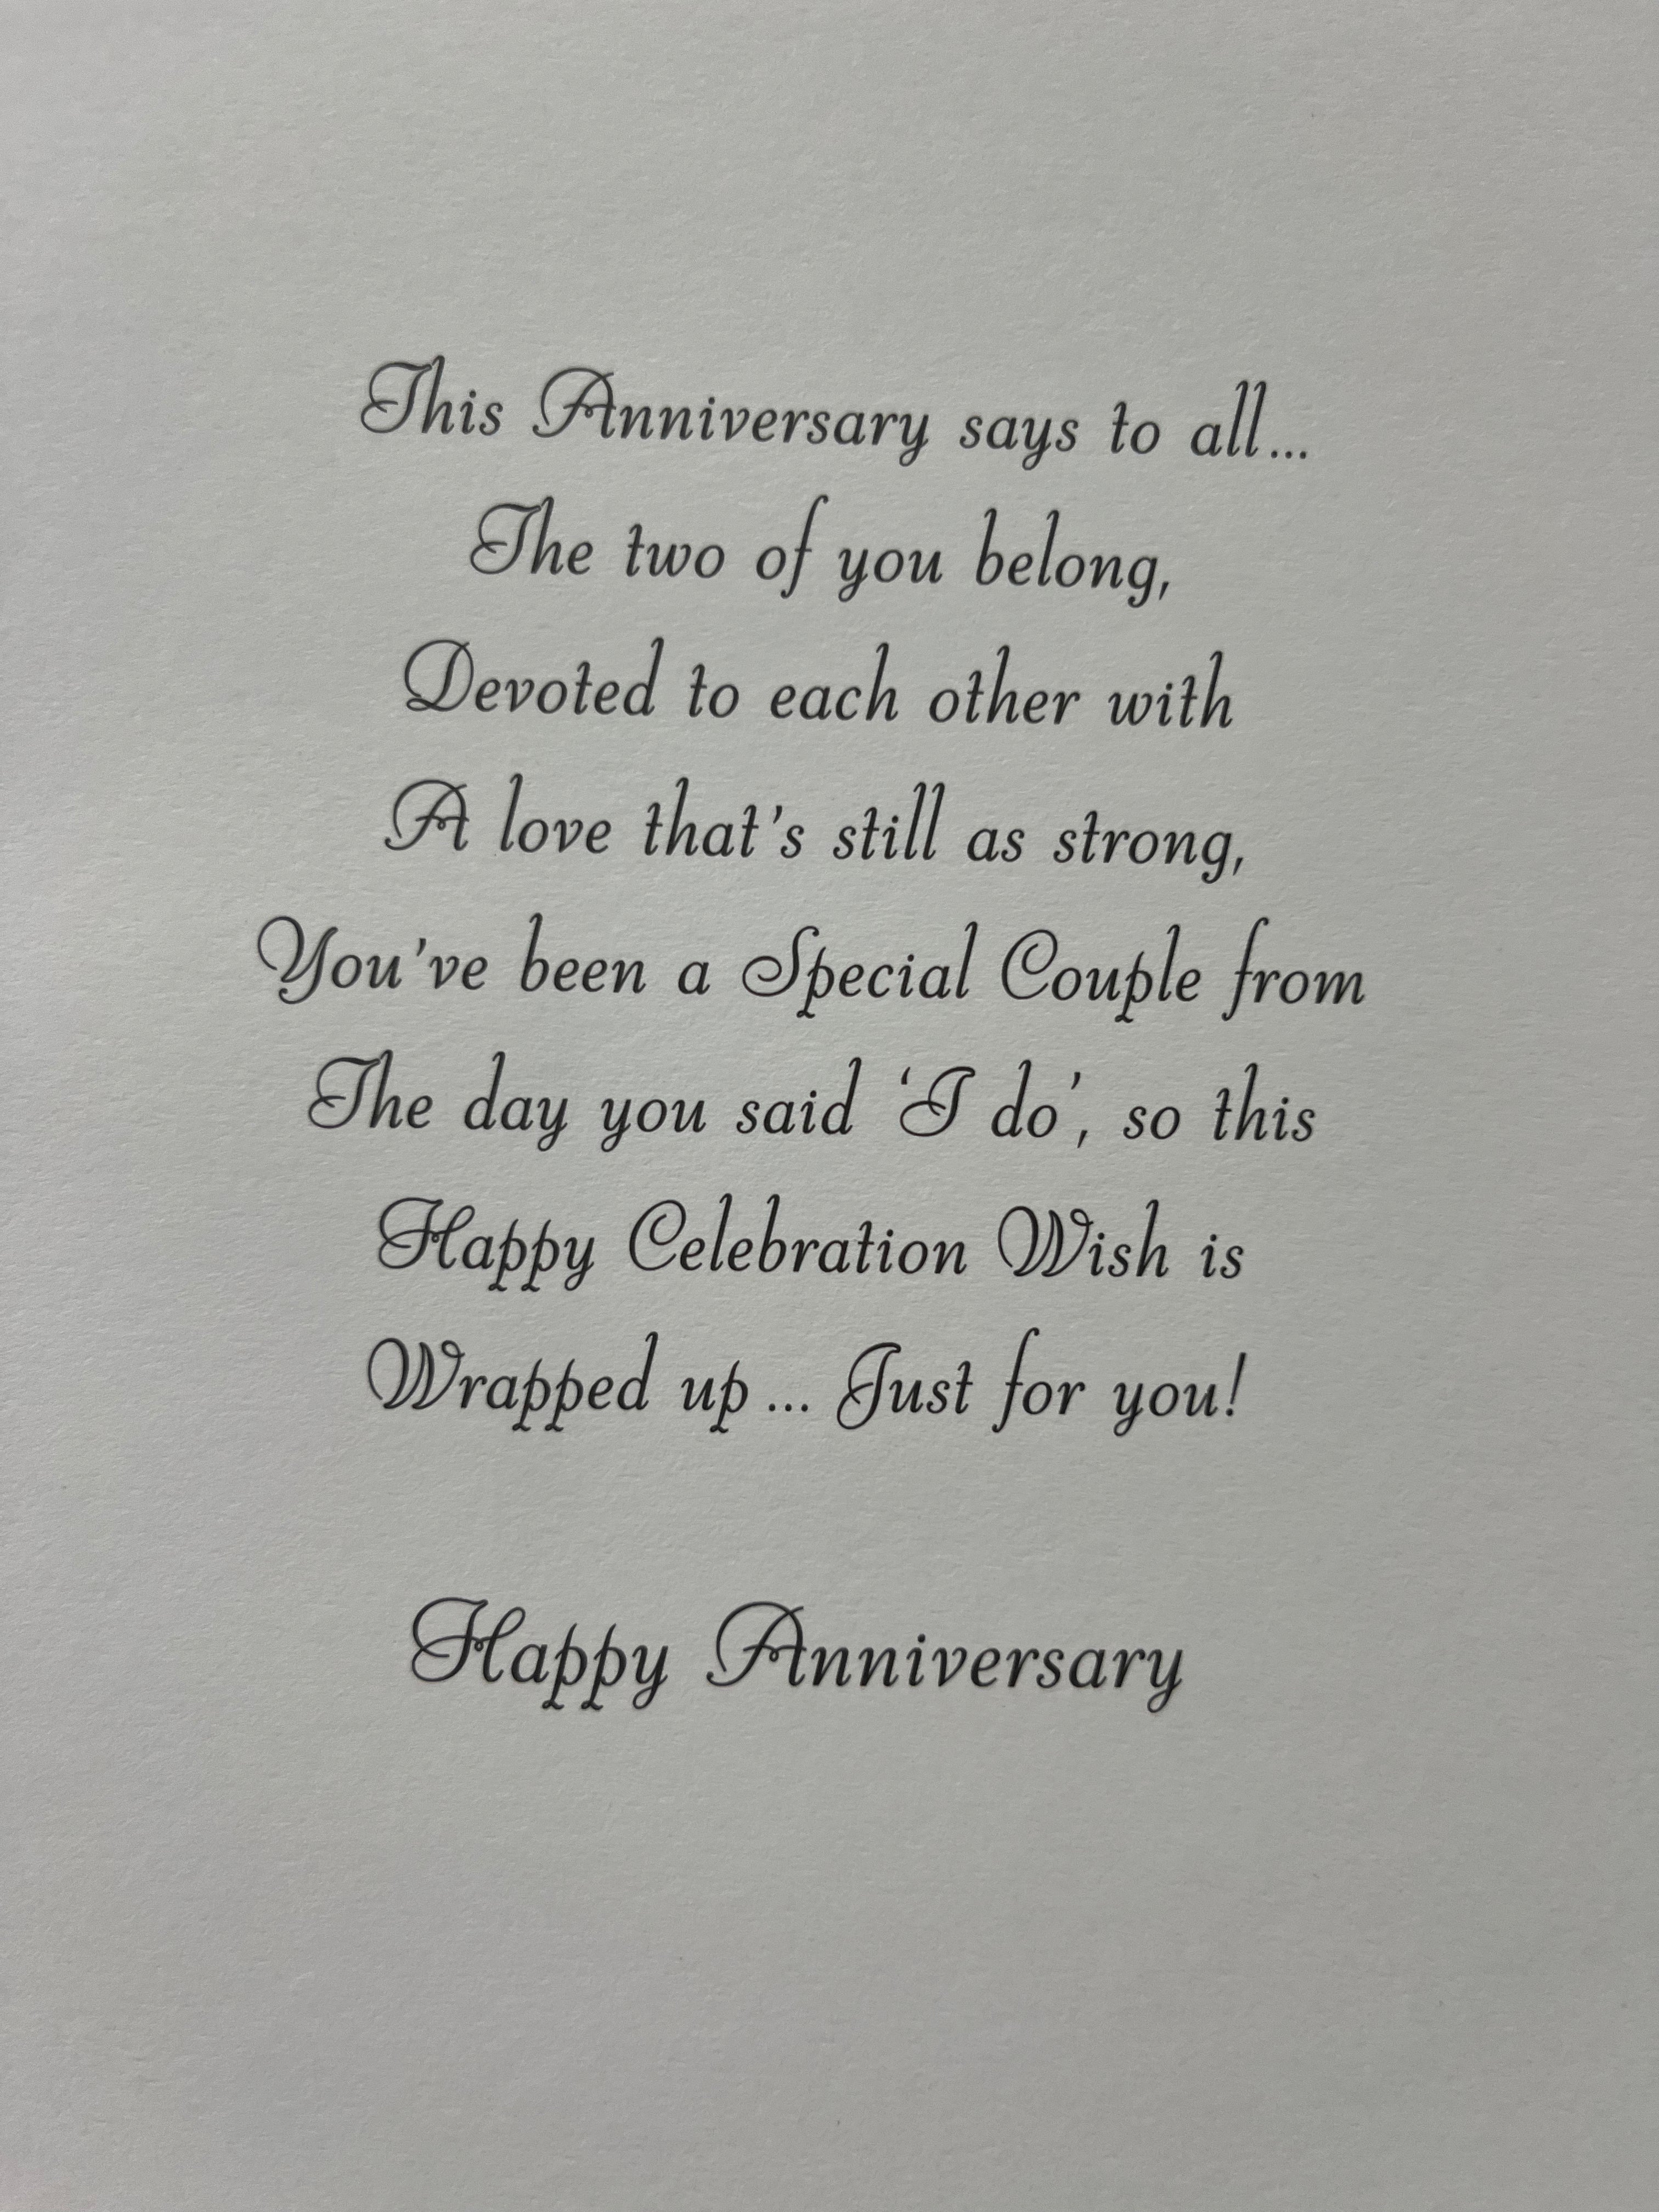 This Anniversary says to all...
The two of you belong,
Devoted to each other with
A love that's still as strong,
You've been a Special Couple from
The day you said ‘I do’, so this
Happy Celebration Wish is
Wrapped up... Just for you!
Happy Anniversary